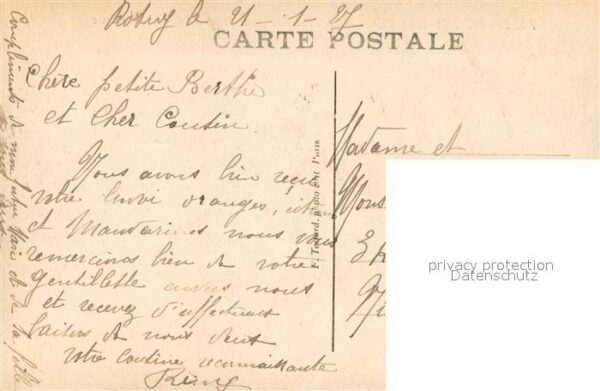 le 21-1-27
CARTE POSTALE
Chère petite Berthe
et Cher Cousin.
Nous avons bien reçu
votre envoi oranges,
et Mandarines nous vous
remercions bien de votre
gentillesse envers nous
et recevez d'affectueux
baisers de nous deux
votre cousine reconnaissante
Compliments de mon futur Maire et de sa fille
Madame et
privacy protection
Datenschutz